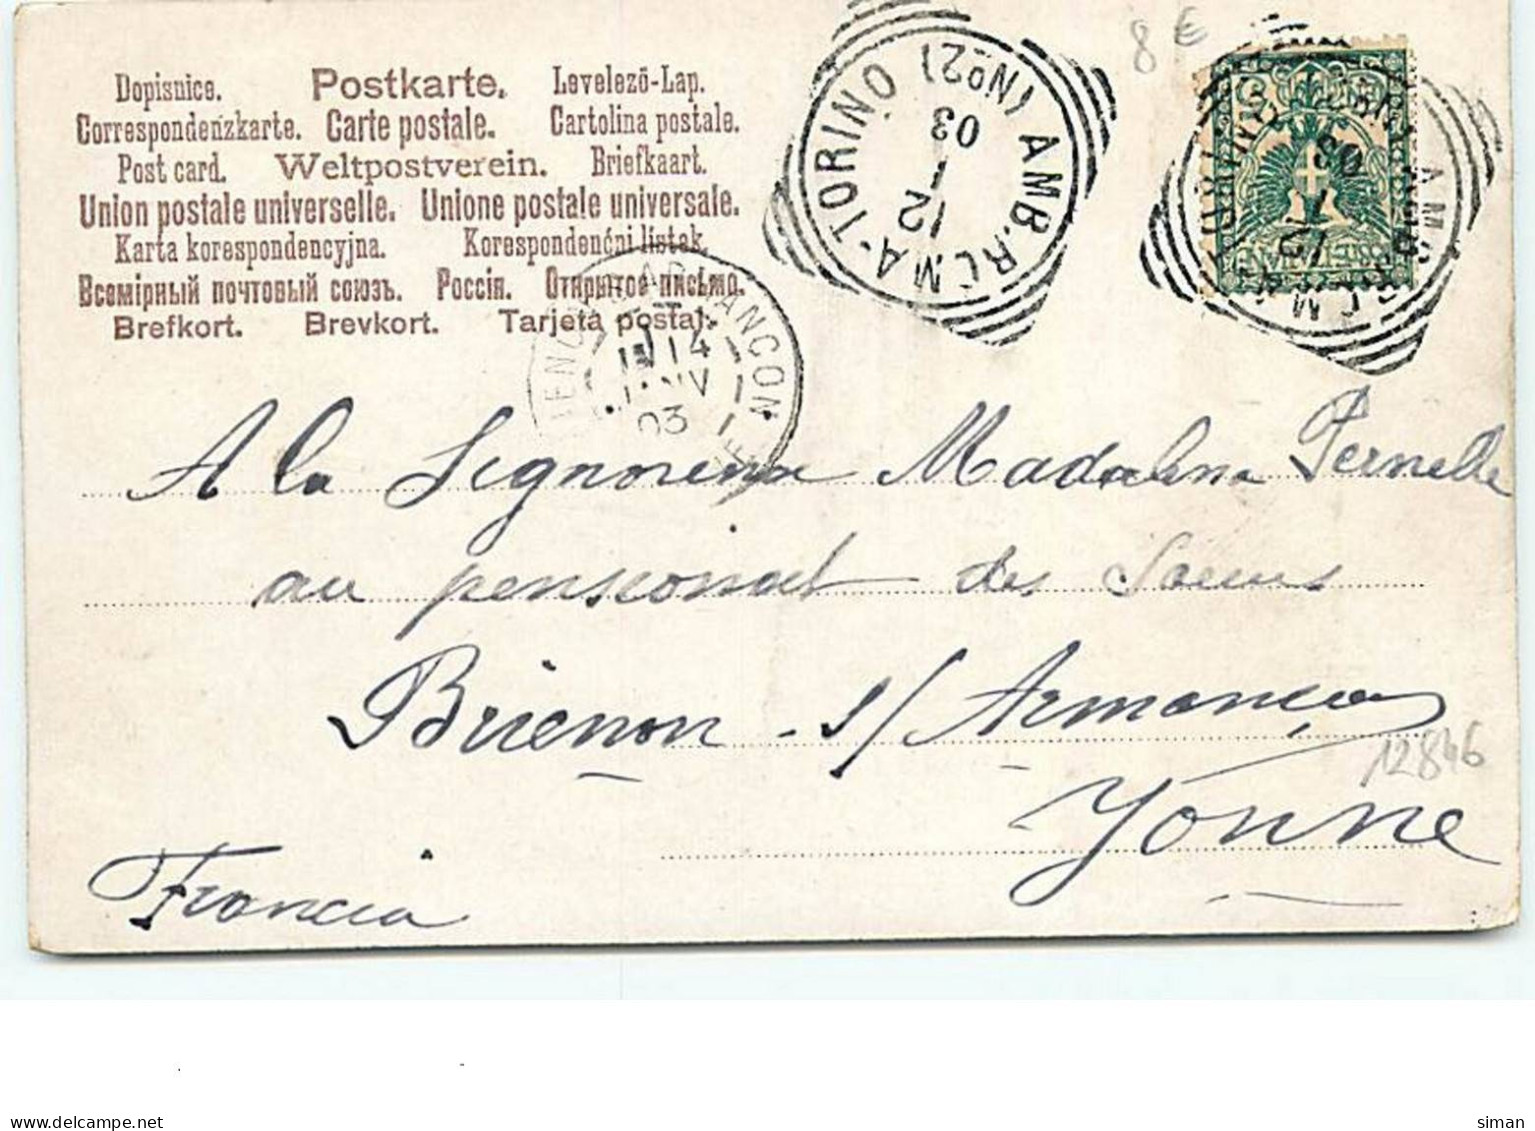 8 €
Dopisnice. Postkarte. Levelező-Lap.
Correspondenzkarte. Carte postale. Cartolina postale.
Post card. Weltpostverein. Briefkaart.
Union postale universelle. Unione postale universale.
Karta korespondencyjna. Korespondenčni listak.
Всемірный почтовый союзъ. Россія. Открытое письмо.
Brefkort. Brevkort. Tarjeta postal.
AMB. ROMA-TORINO (No 2)
12 1 03
14
JANV
03
A la Signorina Madalena Pernelle
au pensionat des Soeurs
Brienon s/ Armançon
12846
Yonne
Francia
delcampe.net
siman